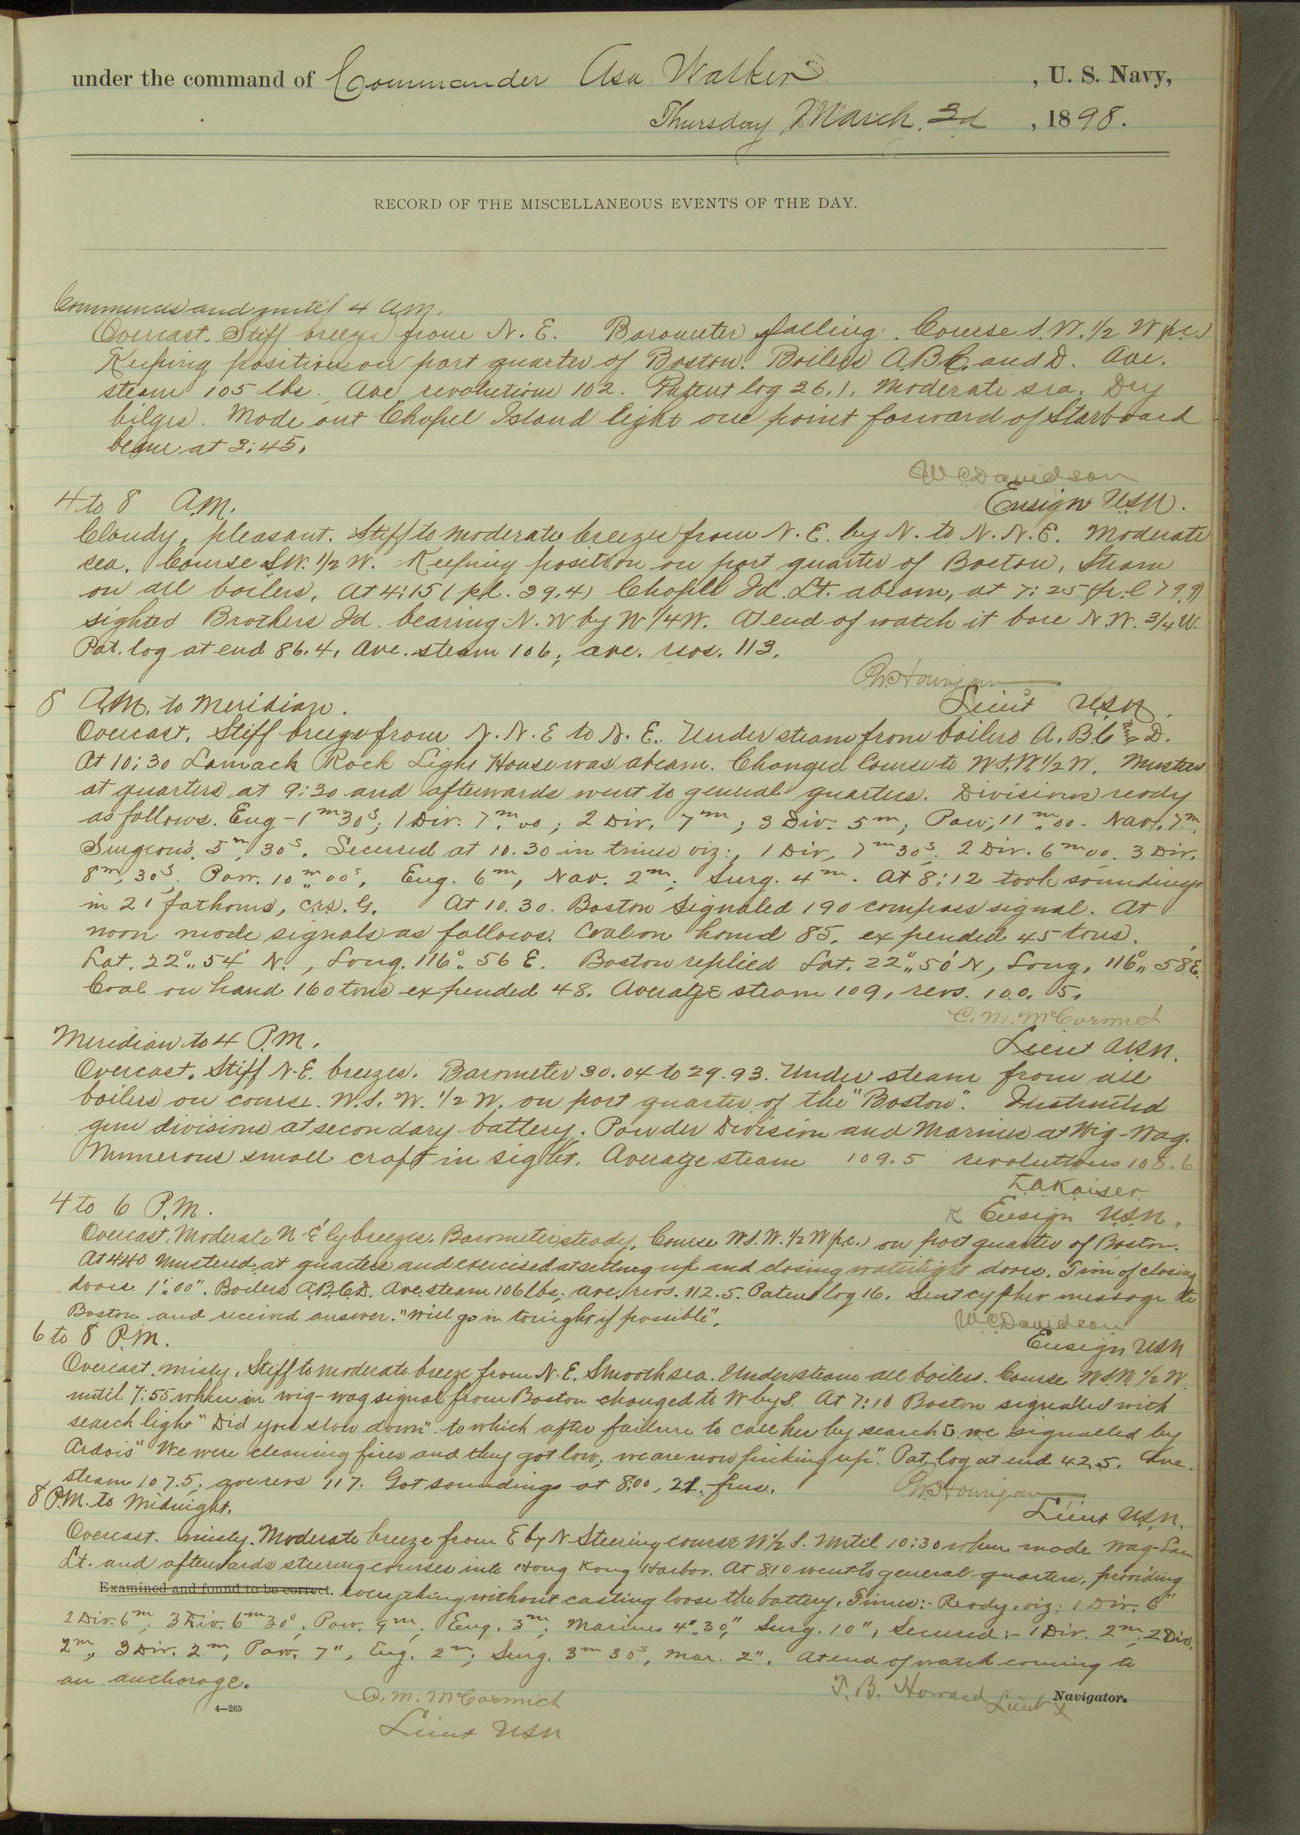 under the command of Commander Asa Walker , U. S. Navy,
Thursday March 3d , 1898.
RECORD OF THE MISCELLANEOUS EVENTS OF THE DAY.
Commences and until 4 a.m.
Overcast. Stiff breeze from N. E. Barometer falling. Course S.W. 1/2 W (p.c.)
Keeping position on port quarter of Boston. Boilers A,B,C, and D. Ave.
steam 105 lbs. Ave revolutions 102. Patent log 26.1. Moderate sea. Dry
bilges. Made out Chapel Island light one point forward of starboard
beam at 3:45.
W C Davidson
4 to 8 A.M. Ensign U.S.N.
Cloudy, pleasant. Stiff to moderate breezes from N. E. by N. to N. N. E. Moderate
sea. Course S.W. 1/2 W. Keeping position on port quarter of Boston. Steam
on all boilers. At 4:15 (p.l. 39.4) Chapel Id. Lt. abeam, at 7:25 (p.l. 79.9)
sighted Brothers Id. bearing N. W by W 1/4 W. At end of watch it bore N.W. 3/4 W.
Pat. log at end 86.4, Ave. steam 106; ave. revs. 113.
8 A.M. to Meridian. Lieut U.S.N.
Overcast. Stiff breeze from N. N. E to N. E. Under steam from boilers A. B. C and D.
At 10:30 Lamock Rock Light House was abeam. Changed Course to W.S.W. 1/2 W. Mustered
at quarters at 9:30 and afterwards went to general quarters. Divisions ready
as follows. Eng - 1m 30s; 1 Div. 7m 00; 2 Div. 7m; 3 Div. 5m; Pow. 11m 00. Nav. 7m.
Surgeons. 5m 30s. Secured at 10.30 in times viz:, 1 Div, 7m 30s. 2 Div. 6m 00. 3 Div.
8m, 30s. Pow. 10m 00s, Eng. 6m, Nav. 2m; Surg. 4m. At 8:12 took soundings
in 21 fathoms, crs. G. At 10.30. Boston signaled 190 compass signal. At
noon made signals as follows. Coal on hand 85, expended 45 tons.
Lat. 22° 54' N., Long. 116° 56 E. Boston replied Lat. 22° 50' N, Long. 116° 58' E.
Coal on hand 160 tons expended 48. Average steam 109, revs. 100.5.
C. M. McCormick
Meridian to 4 P.M. Lieut U.S.N.
Overcast. Stiff N.E. breezes. Barometer 30.04 to 29.93. Under steam from all
boilers on course W.S.W. 1/2 W. on port quarter of the "Boston". Instructed
gun divisions at secondary battery. Powder Division and Marines at Wig-Wag.
Numerous small craft in sight. Average steam 109.5 revolutions 108.6
L A Kaiser
4 to 6 P.M. Ensign U.S.N.
Overcast. Moderate N E'ly breezes. Barometer steady. Course W.S.W. 1/2 W (p.c.) on port quarter of Boston.
At 4:40 mustered at quarters and exercised at setting up and closing watertight doors. Time of closing
doors 1' 00". Boilers A.B.C.D. Ave. steam 106 lbs, ave. revs. 112.5. Patent log 16. Sent cypher message to
Boston and received answer. "Will go in tonight if possible".
W C Davidson
6 to 8 P.M. Ensign USN
Overcast, misty, Stiff to moderate breeze from N. E. Smooth sea. Under steam all boilers. Course W.S.W. 1/2 W.
until 7:55 when in wig-wag signal from Boston changed to W by S. At 7:10 Boston signalled with
search light "Did you slow down" to which after failure to call her by search we signalled by
Ardois "We were cleaning fires and they got low, we are now picking up." Pat. log at end 42.5. Ave.
steam 107.5; ave revs 117. Got soundings at 8:00, 21 fms.
8 P.M. to Midnight. Lieut U.S.N.
Overcast. misty. Moderate breeze from E by N. Steering course W 1/2 S. Until 10:30 when made Wag-Lan
Lt. and afterwards steering courses into Hong Kong Harbor. At 8:10 went to general quarters, providing
Examined and found to be correct. everything without casting loose the battery. Times:- Ready, viz: 1 Div. 6"
2 Div. 6m, 3 Div. 6m 30s, Pow. 9m, Eng. 3m; Marines 4" 30," Surg. 10", Secured:- 1 Div. 2m, 2 Div.
2m, 3 Div. 2m, Pow. 7", Eng. 2m; Surg. 3m 30s, Mar. 2". At end of watch coming to
an anchorage.
C. M. McCormick
Lieut USN
T. B. Howard Lieut Navigator.
4—265